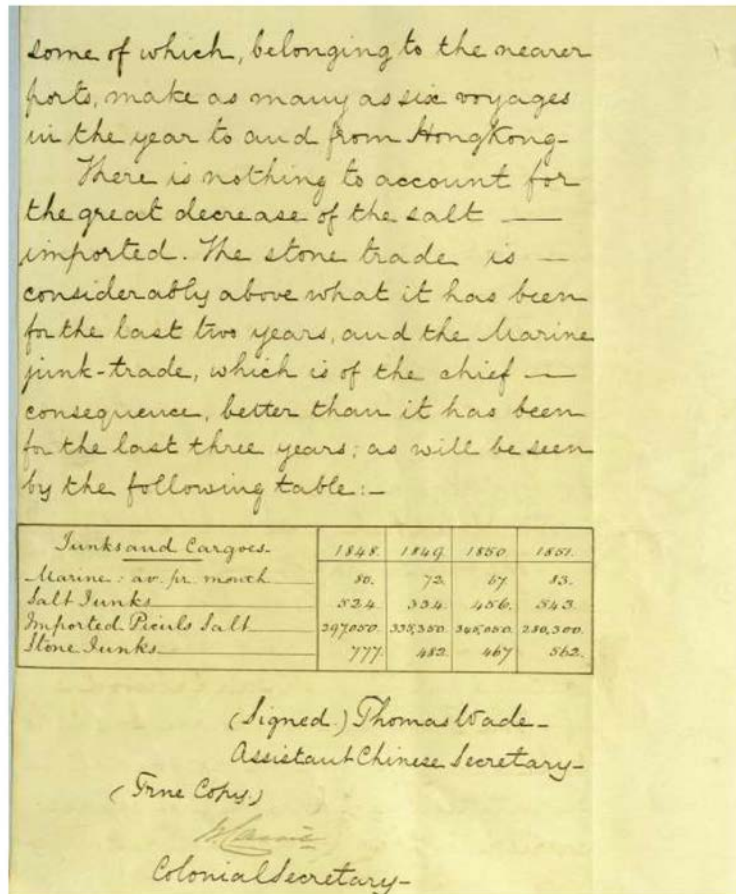 some of which, belonging to the nearer
ports, make as many as six voyages
in the year to and from HongKong-
There is nothing to account for
the great decrease of the salt —
imported. The stone trade is —
considerably above what it has been
for the last two years, and the Marine
junk-trade, which is of the chief —
consequence, better than it has been
for the last three years; as will be seen
by the following table:-
Junks and Cargoes- 1848. 1849. 1850 1851.
Marine: av. pr. month 80. 72. 67. 83.
Salt Junks 524. 334. 456. 543.
Imported Piculs Salt 335,350. 280,300.
Stone Junks 777. 482. 467 562.
(Signed.) Thomas Wade-
Assistant Chinese Secretary-
(True Copy.)
Colonial Secretary-